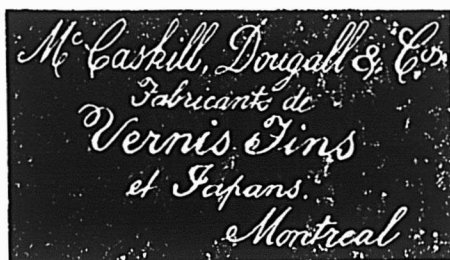 Mc Caskill, Dougall & Cos.
Fabricants de
Vernis Fins
et Japans.
Montreal